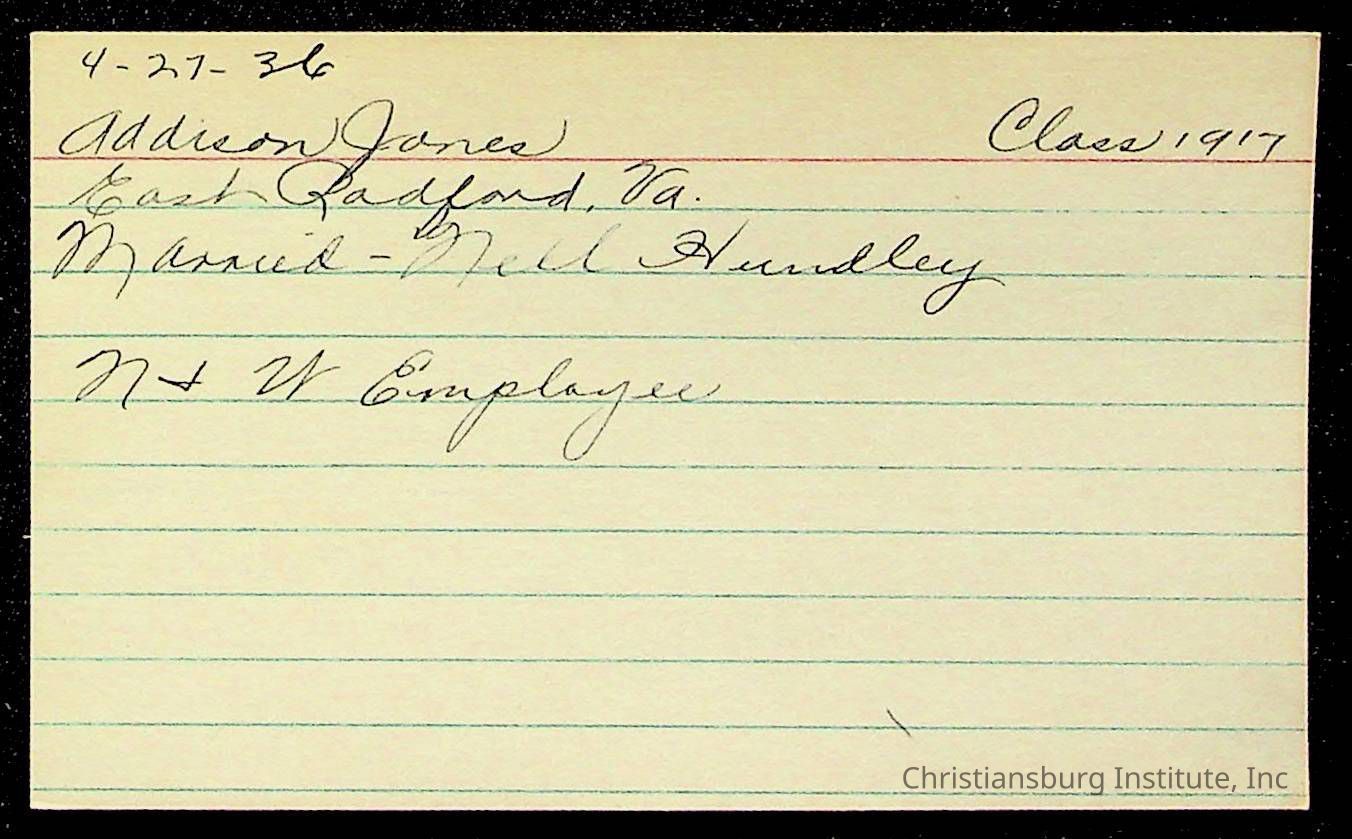 4-27-36
Addison Jones Class 1917
East Radford, Va.
Married - Nell Hundley
N & W Employee
Christiansburg Institute, Inc